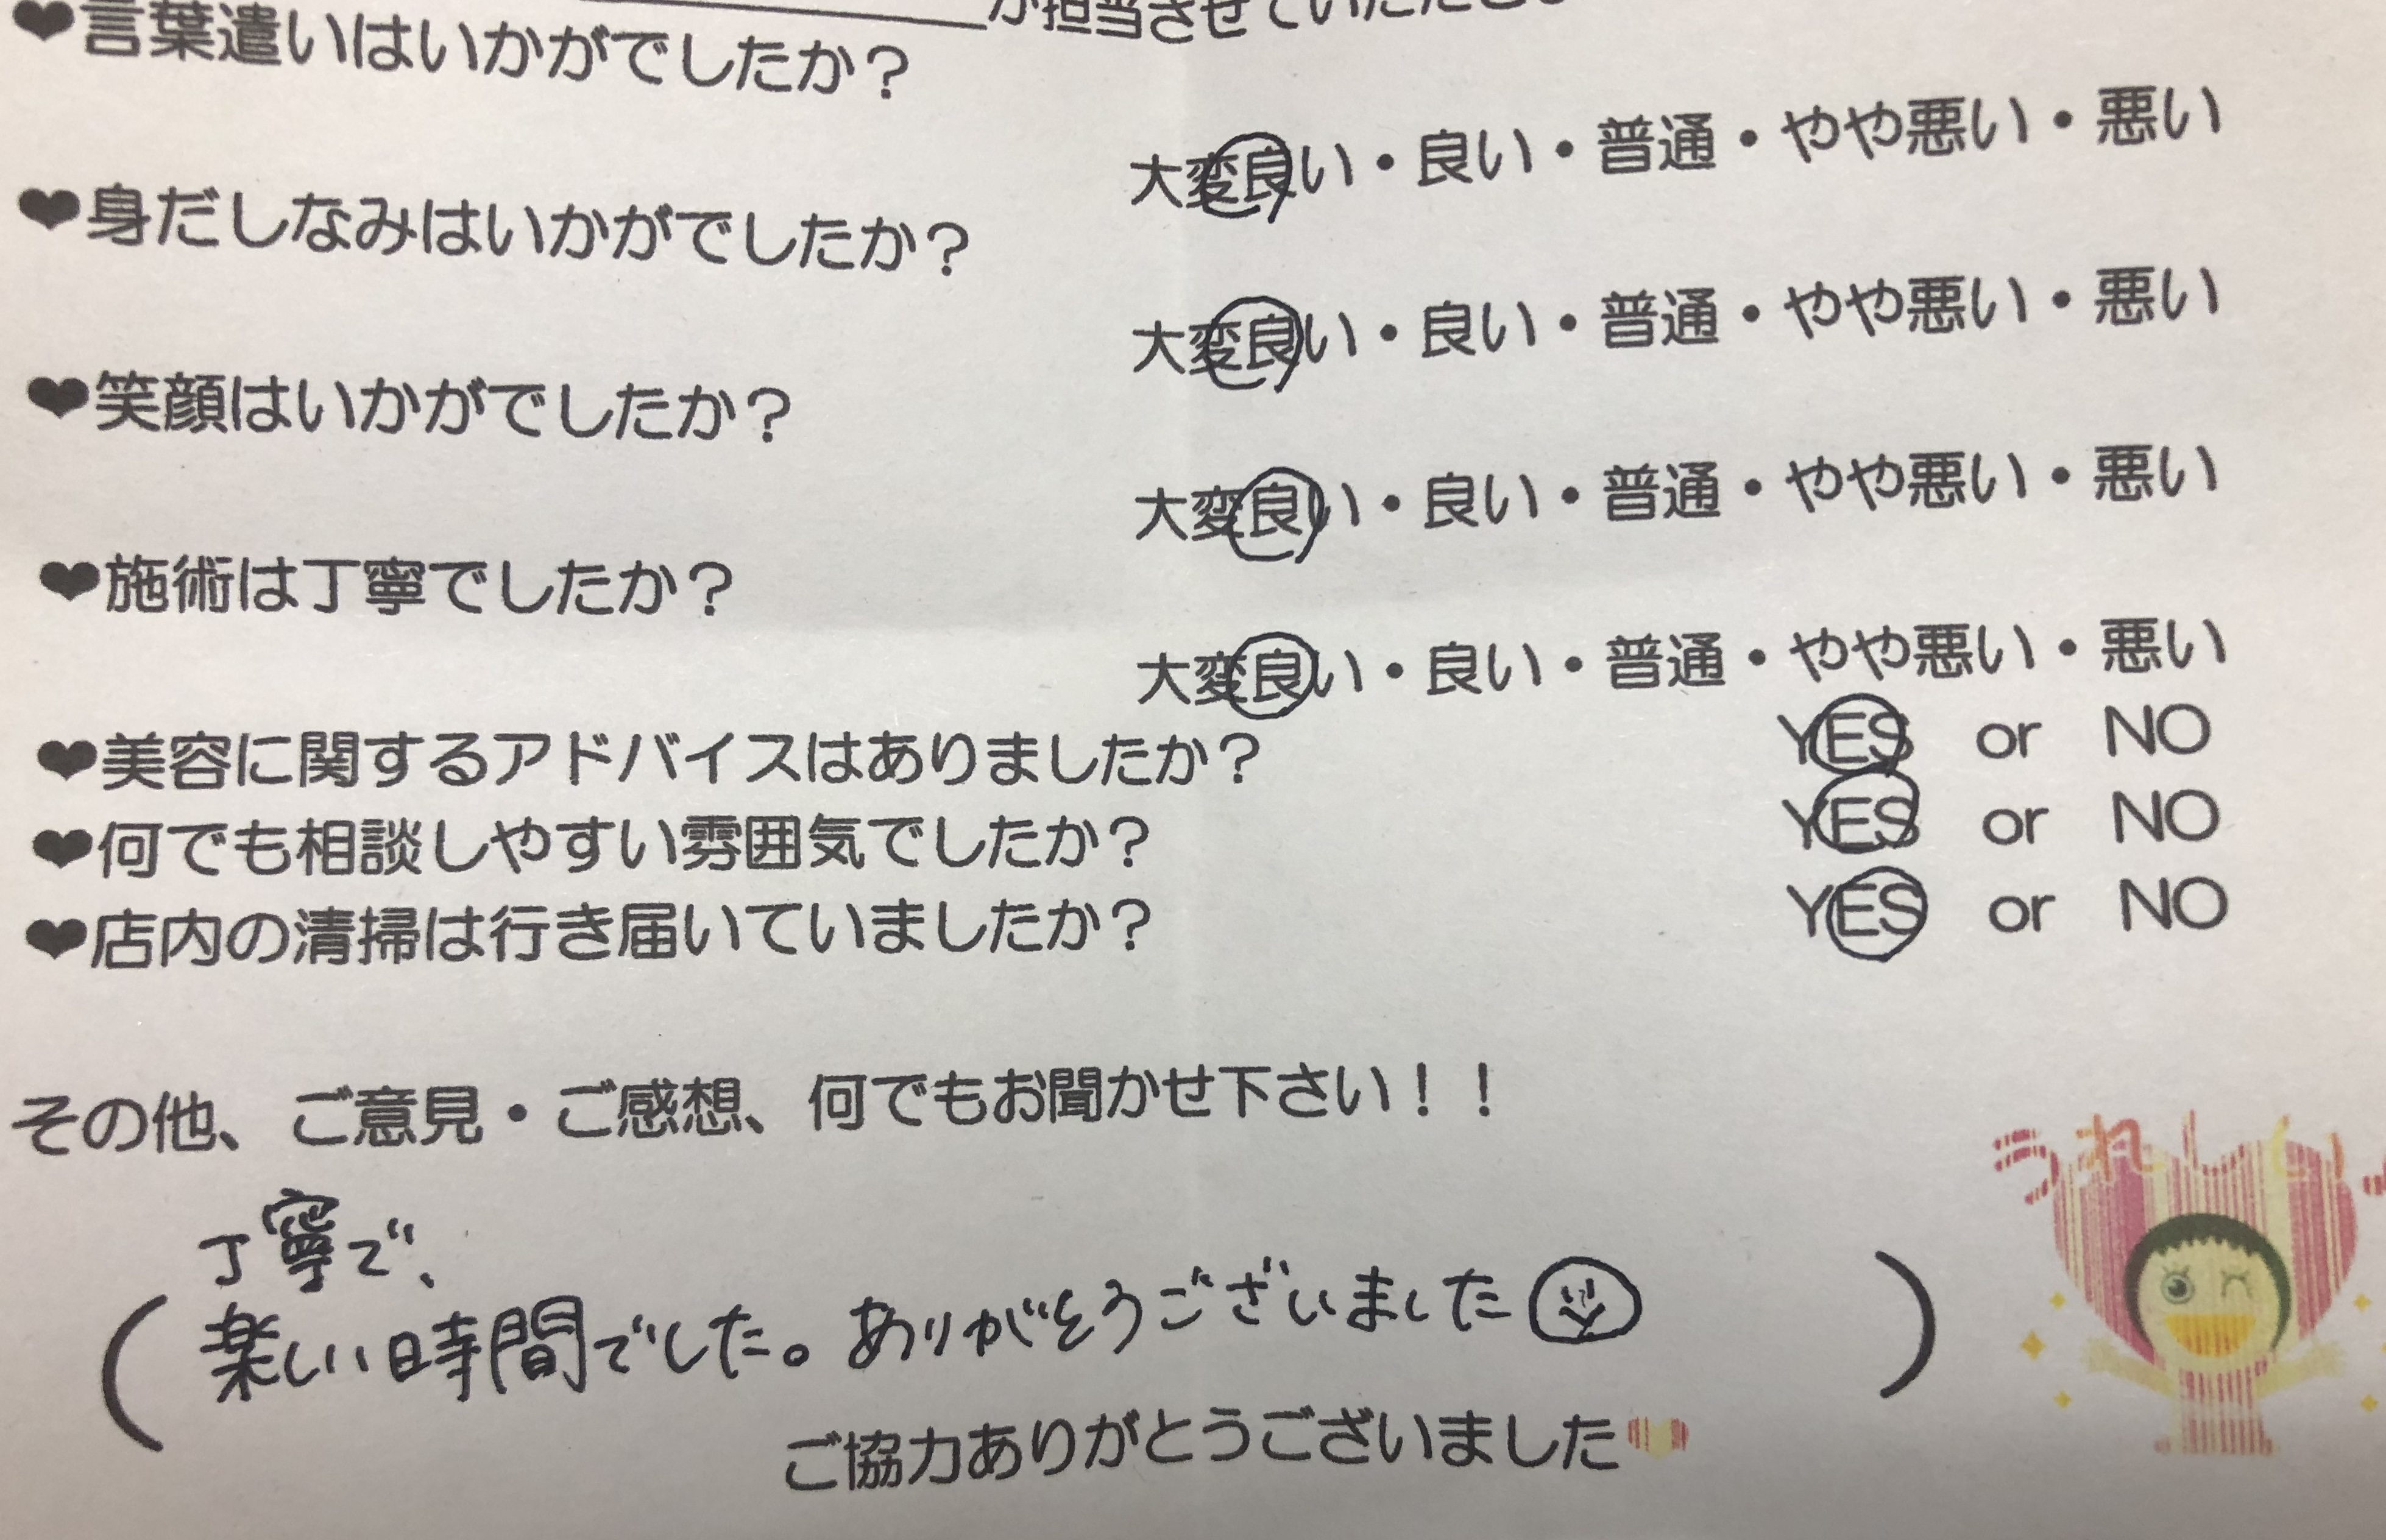 が担当させていただきま
❤言葉遣いはいかがでしたか？
大変良い・良い・普通・やや悪い・悪い
❤身だしなみはいかがでしたか？
大変良い・良い・普通・やや悪い・悪い
❤笑顔はいかがでしたか？
大変良い・良い・普通・やや悪い・悪い
❤施術は丁寧でしたか？
大変良い・良い・普通・やや悪い・悪い
❤美容に関するアドバイスはありましたか？ YES or NO
❤何でも相談しやすい雰囲気でしたか？ YES or NO
❤店内の清掃は行き届いていましたか？ YES or NO
その他、ご意見・ご感想、何でもお聞かせ下さい！！
うれしい
丁寧で、
楽しい時間でした。ありがとうございました
ご協力ありがとうございました